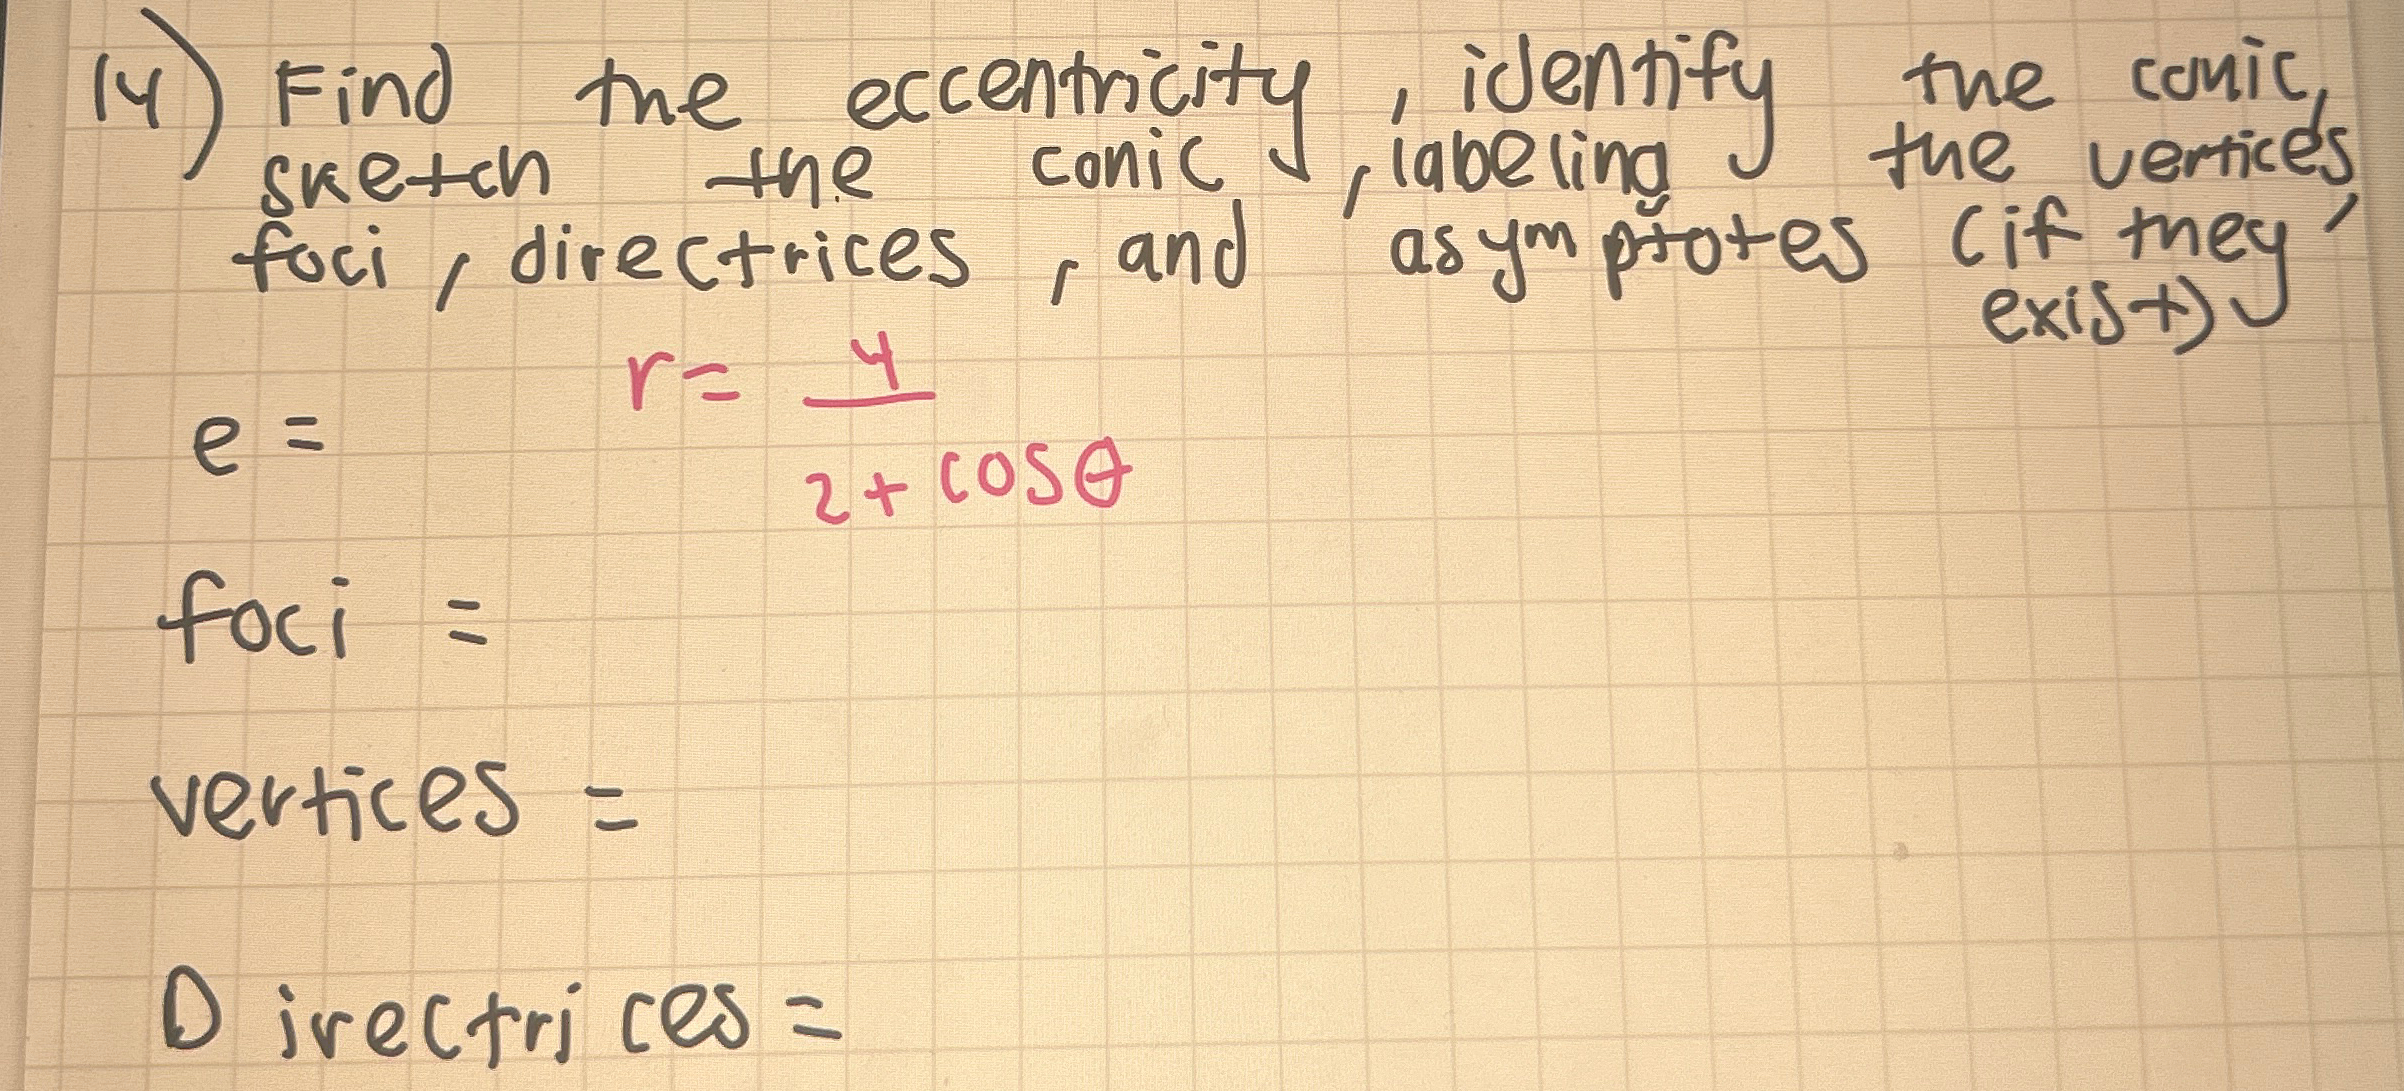 14) Find the eccentricity, identify the conic,
sketch the conic, labeling the vertices,
foci, directrices, and asymptotes (if they
exist)
r = 4
e =
2 + cosθ
foci =
vertices =
Directrices =